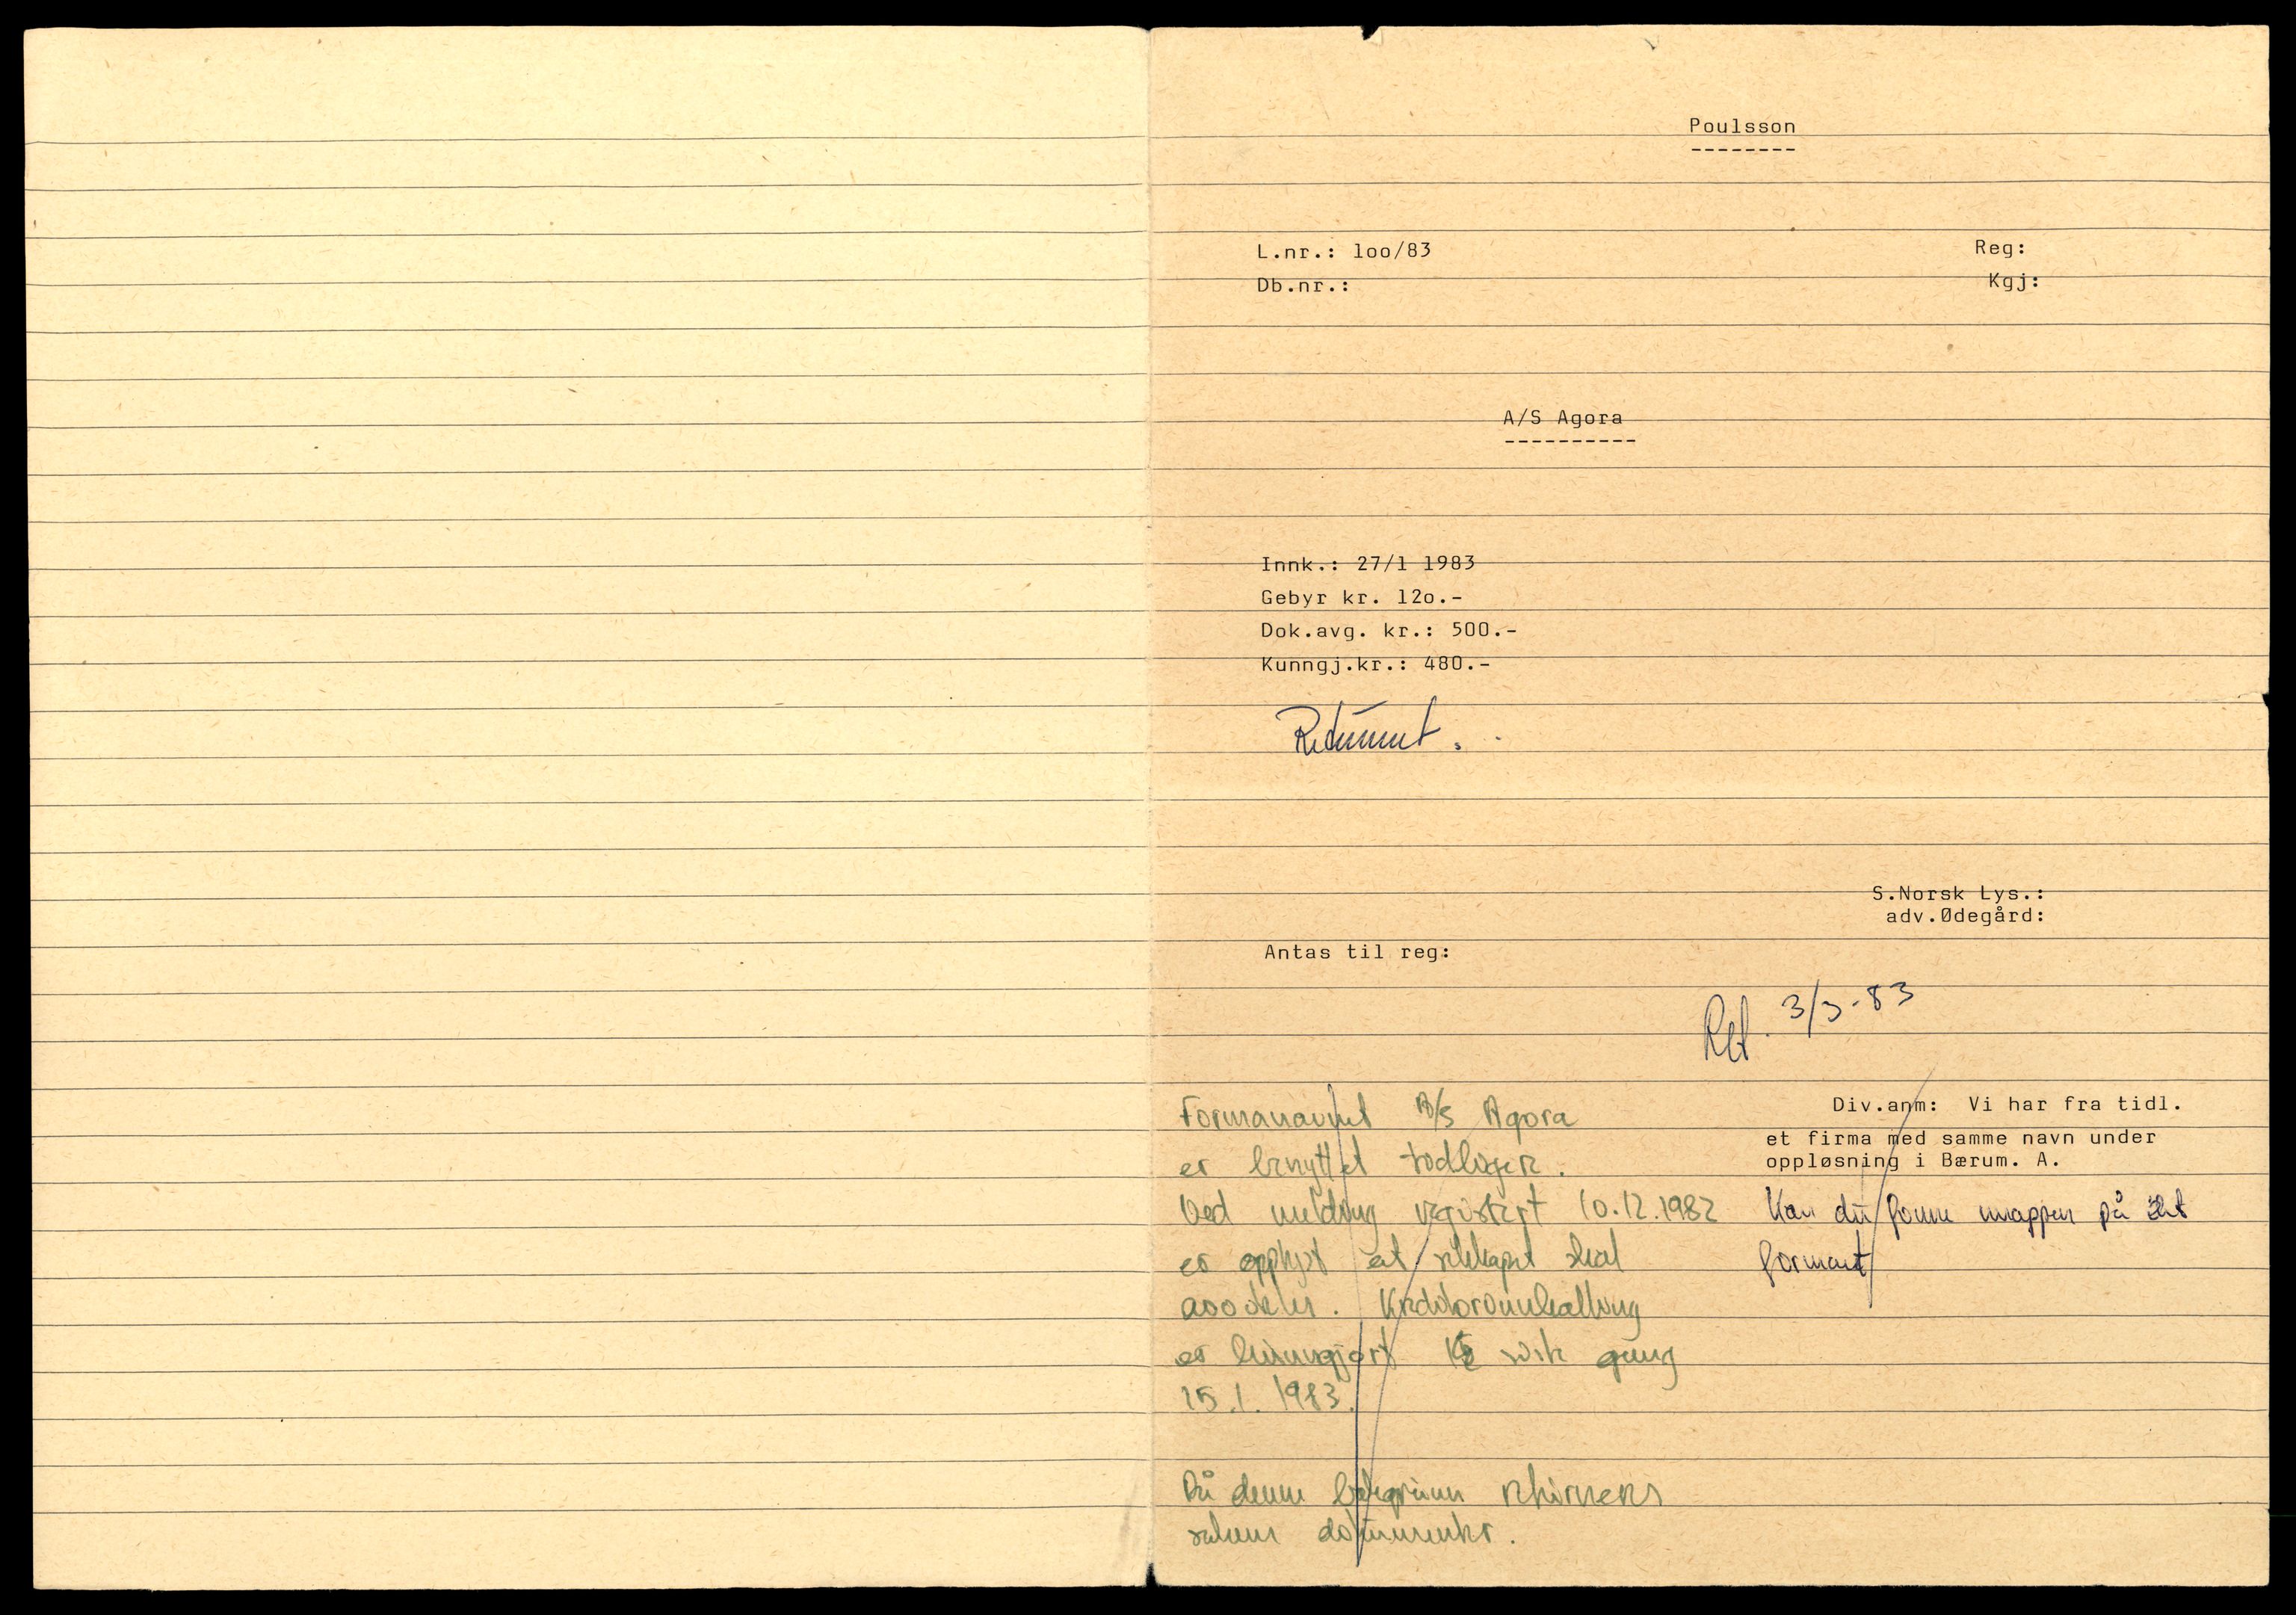 Poulsson
--------
L.nr.: loo/83
Reg:
Db.nr.:
Kgj:
A/S Agora
----------
Innk.: 27/1 1983
Gebyr kr. 12o.-
Dok.avg. kr.: 500.-
Kunngj.kr.: 480.-
Returnert.
S.Norsk Lys.:
adv.Ødegård:
Antas til reg:
Ret. 3/3-83
Firmanavnet A/S Agora
er benyttet tidligere.
Ved melding registrert 10.12.1982
er opplyst at selskapet skal
avvikles. Kreditorinnkalling
er kunngjort siste gang
15.1.1983.
På denne bakgrunn returneres
sakens dokumenter.
Div.anm: Vi har fra tidl.
et firma med samme navn under
oppløsning i Bærum. A.
Kan du finne mappen på det
firmaet